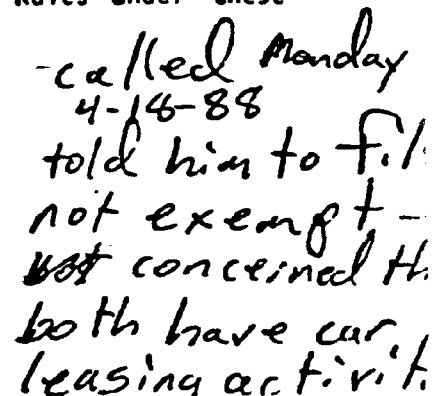 Rules Under These
-called Monday
4-18-88
told him to fil
not exempt -
conceined th
both have car
leasing activit